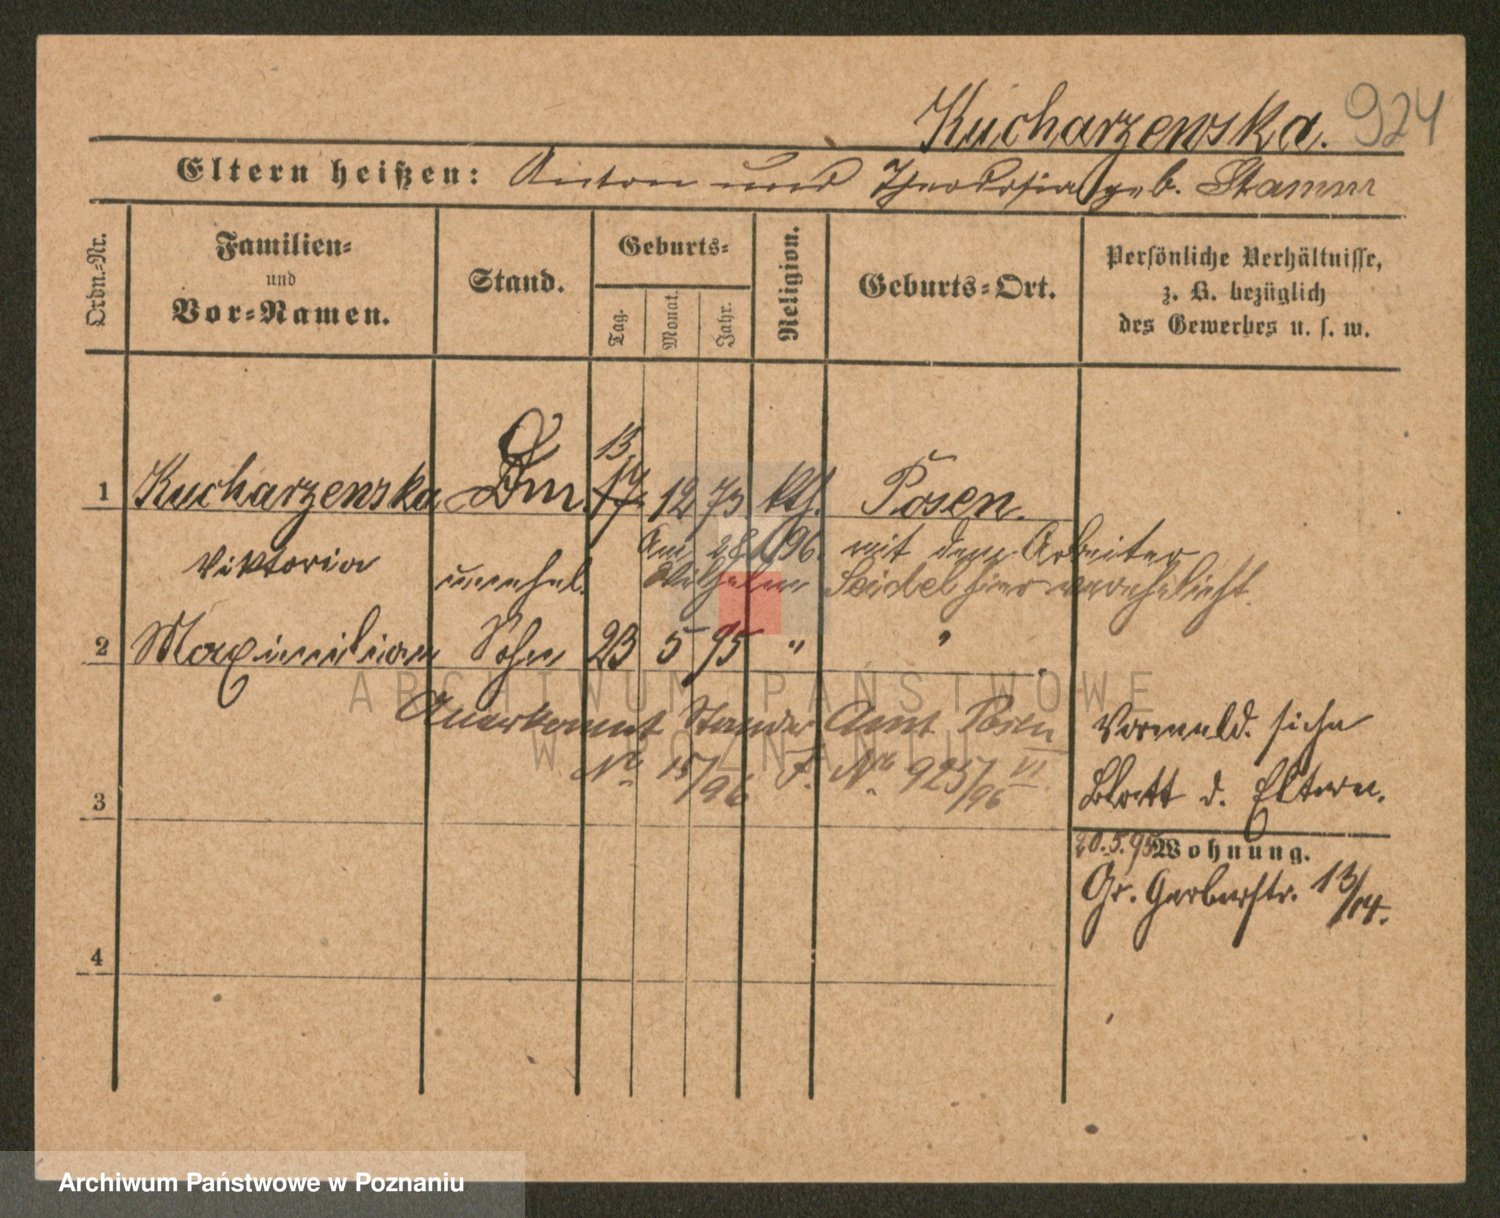 Kucharzewska. 924
Eltern heißen: Anton und Theodosia geb. Stamm
Ordn.=Nr.
Familien= und Vor=Namen.
Stand.
Geburts=
Tag. Monat. Jahr.
Religion.
Geburts=Ort.
Persönliche Verhältnisse,
z. B. bezüglich
des Gewerbes u. s. w.
15
1 Kucharzewska 17. 12 73 kth. Posen.
Viktoria unehel.
Am 28 96. mit dem Arbeiter
Wilhelm Seidel hier verehelicht.
2 Maximilian Sohn 23 5 95 " "
Anerkannt Standes Amt Posen
No 15/96 F. No. 925/96 VI
Vormuld. siehe
Blatt d. Eltern.
3
20.5.95 Wohnung.
Gr. Gerberstr. 13/14.
4
ARCHIWUM PAŃSTWOWE
W POZNANIU
Archiwum Państwowe w Poznaniu